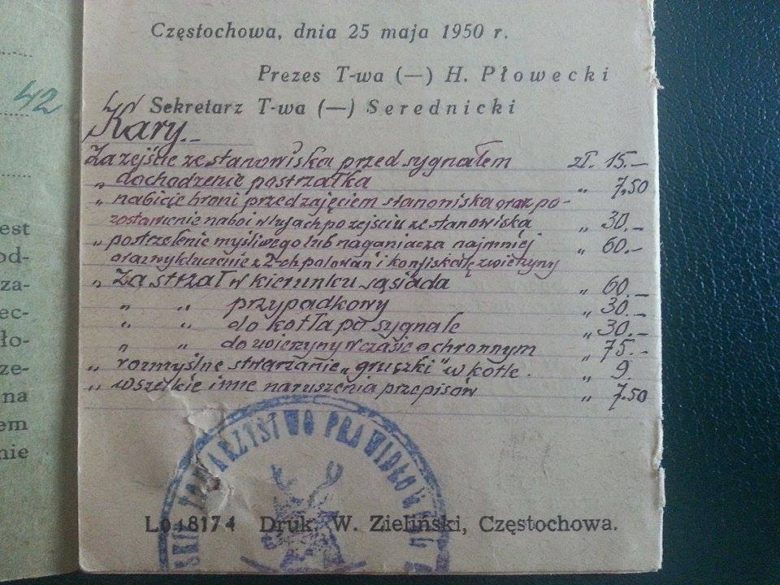 Częstochowa, dnia 25 maja 1950 r.
Prezes T-wa (—) H. Płowecki
42
Sekretarz T-wa (—) Serednicki
Kary.—
Za zejście ze stanowiska przed sygnałem zł. 15.—
„ dochodzenie postrzałka „ 7,50
„ nabicie broni przed zajęciem stanowiska oraz po-
zostawienie naboi w lufach po zejściu ze stanowiska „ 30.—
„ postrzelenie myśliwego lub naganiacza najmniej „ 60.—
oraz wykluczenie z 2-ch polowań i konfiskatę zwierzyny
„ Za strzał w kierunku sąsiada „ 60.—
„ „ przypadkowy „ 30.—
„ „ do kotła po sygnale „ 30.—
„ „ do zwierzyny w czasie ochronnym „ 75.—
„ rozmyślne stwarzanie „gruszki" w kotle. „ 9.
„ wszelkie inne naruszenia przepisów „ 7.50
est
od-
za-
ec-
ło-
ze-
na
em
nie
SKIE TOWARZYSTWO PRAWIDŁOWEG
Lo 8174 Druk. W. Zieliński, Częstochowa.